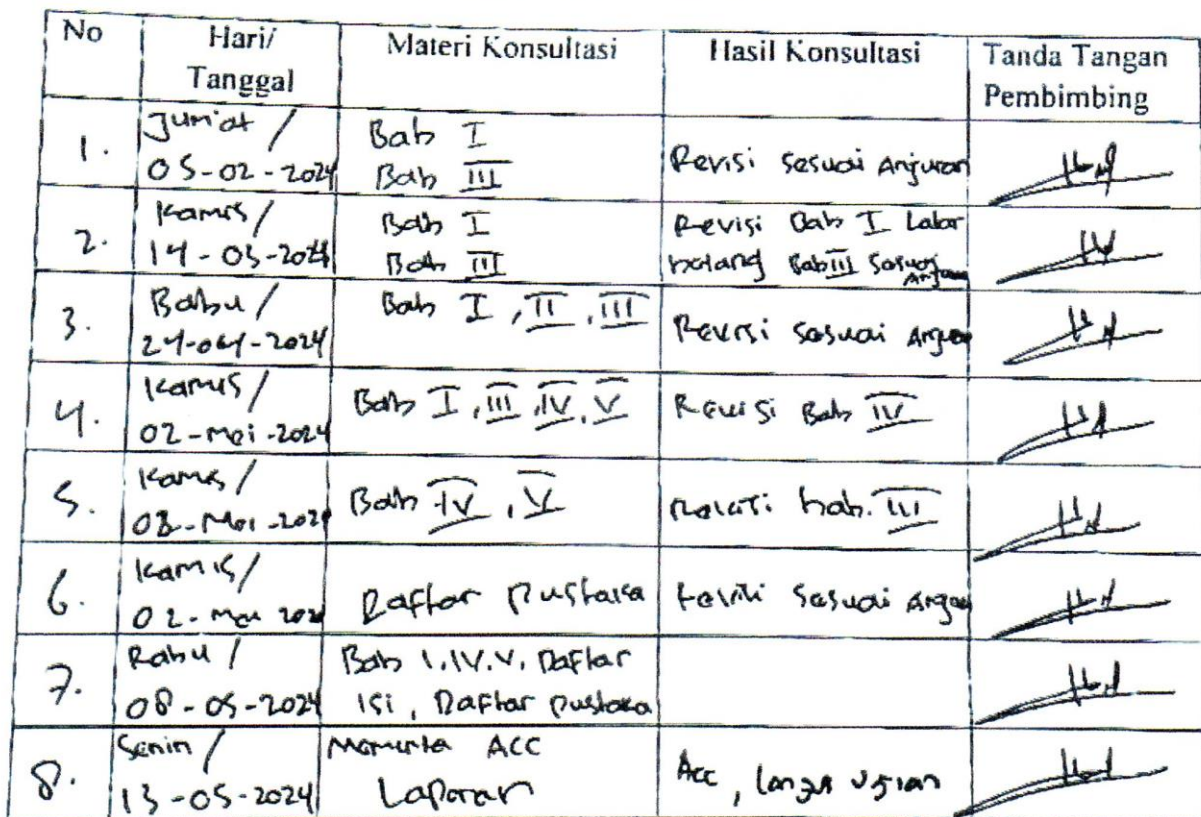 No
Hari/
Tanggal
Materi Konsultasi
Hasil Konsultasi
Tanda Tangan
Pembimbing
1.
Jum'at /
05-02-2024
Bab I
Bab III
Revisi sesuai Anjuran
2.
Kamis/
14-03-2024
Bab I
Bab III
Revisi Bab I Latar
Bab III Sesuai
3.
Rabu/
24-04-2024
Bab I, II, III
Revisi sesuai
4.
Kamis/
02-Mei-2024
Bab I, III, IV, V
Revisi Bab IV
5.
Kamis/
Bab IV, V
bab III
6.
Kamis/
02-Mei 2024
Daftar Pustaka
sesuai
7.
Rabu /
08-05-2024
Bab I.IV.V. Daftar
isi, Daftar pustaka
8.
Senin /
13-05-2024
Meminta ACC
Laporan
Acc,